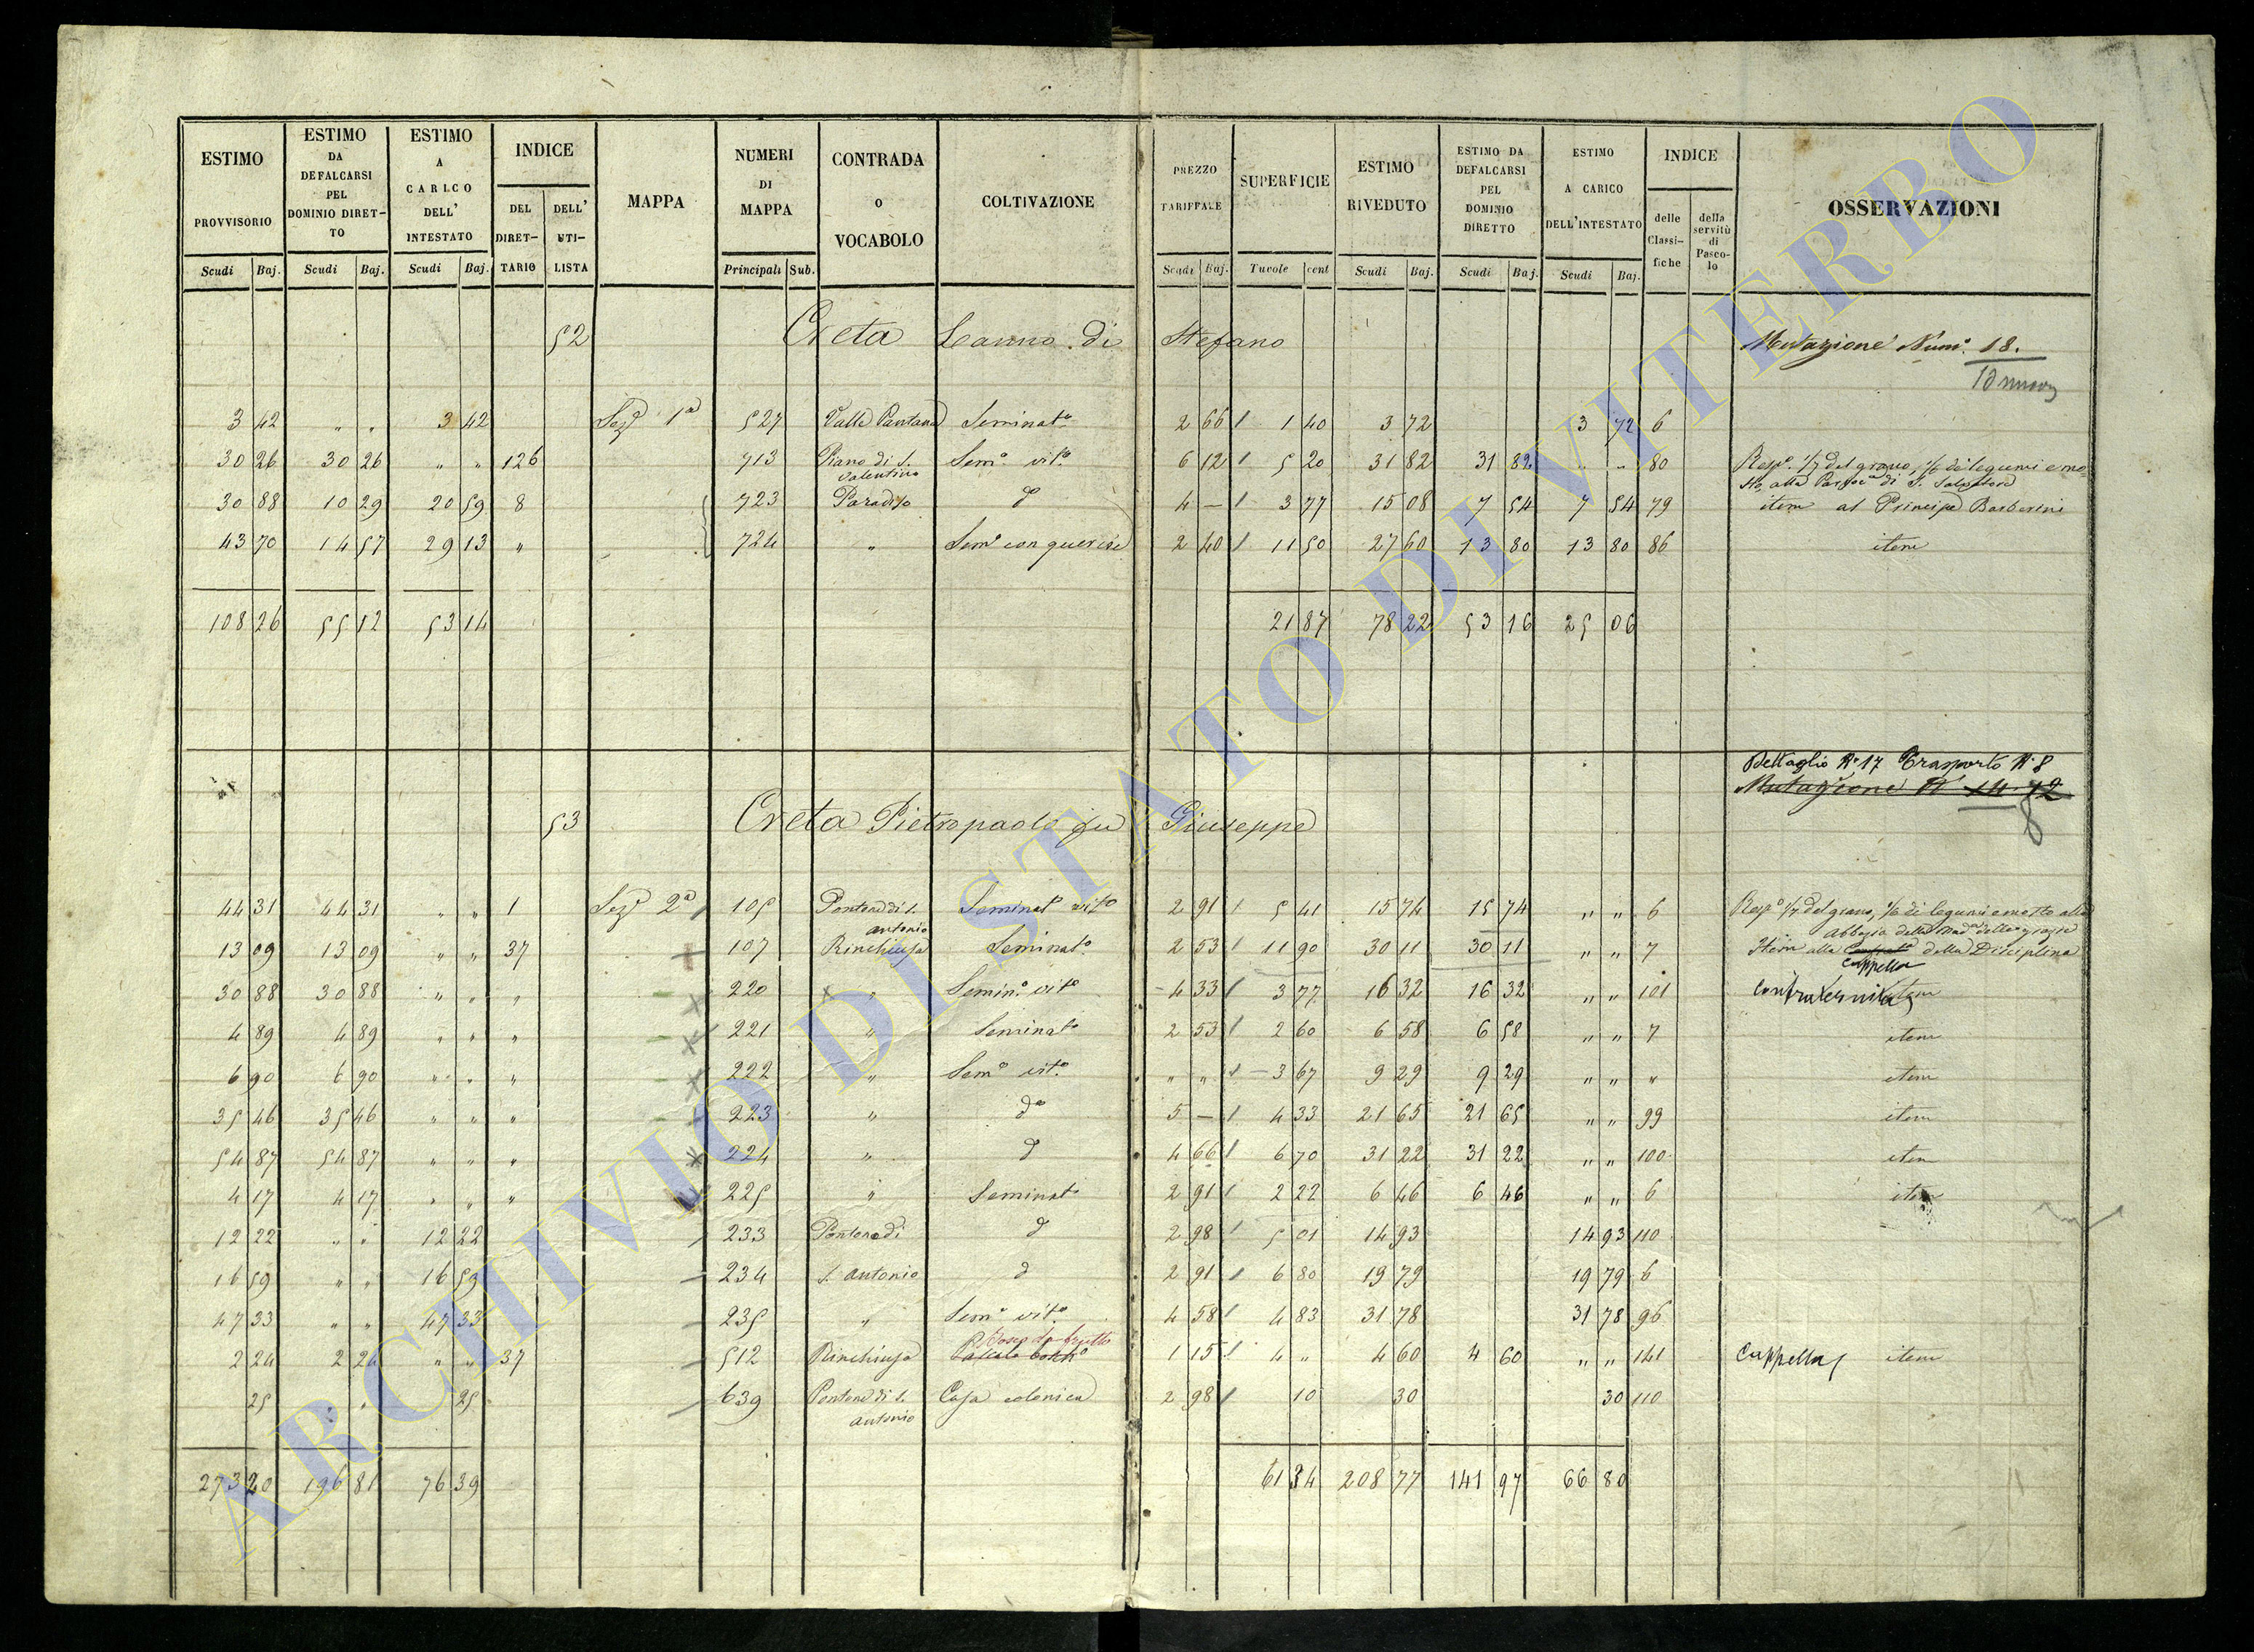 ESTIMO PROVVISORIO Scudi Baj.
ESTIMO DA DEFALCARSI PEL DOMINIO DIRET-TO Scudi Baj.
ESTIMO A CARICO DELL' INTESTATO Scudi Baj.
INDICE DEL DIRET-TARIO DELL' UTI-LISTA
MAPPA
NUMERI DI MAPPA Principali Sub.
CONTRADA O VOCABOLO
COLTIVAZIONE
PREZZO TARIFFALE Scudi Baj.
SUPERFICIE Tavole cent
ESTIMO RIVEDUTO Scudi Baj.
ESTIMO DA DEFALCARSI PEL DOMINIO DIRETTO Scudi Baj.
ESTIMO A CARICO DELL'INTESTATO Scudi Baj.
INDICE delle Classi-fiche della servitù di Pasco-lo
OSSERVAZIONI
52 Creta di Stefano Mutazione Num.º 18.
3 42 " " 3 42 Sez.e 1ª 527 Valle Pantana Seminat.o 2 66 1 40 3 72 3 72 6
30 26 30 26 " " 126 713 Piano di S. Valentino Sem.o vit.o 6 12 5 20 31 82 31 82 " " 80 Resp.e 1/7 del grano, 1/6 di legumi e mo-sto, alla Parroc.a di S. Salvatore
30 88 10 29 20 59 8 723 Paradiso d.o 4 — 3 77 15 08 7 54 7 54 79 item al Principe Barberini
43 70 14 57 29 13 " 724 " Sem.o con querce 2 40 11 50 27 60 13 80 13 80 86 item
108 26 55 12 53 14 21 87 78 22 53 16 25 06
Dettaglio N.º 17 Trasporto N.º 8
Mutazione N.º 14.12
8
53 Creta Pietropaolo fu Giuseppe
44 31 44 31 " " 1 Sez.e 2ª 105 Pontone di S. Antonio Seminat.o vit.o 2 91 5 41 15 74 15 74 " " 6 Resp.e 1/7 del grano, 1/6 di legumi e mosto alla Abbazia della Mad.a delle grazie
13 09 13 09 " " 37 107 Rinchiusa Seminat.o 2 53 11 90 30 11 30 11 " " 7 Item alla Cappella della Disciplina
30 88 30 88 " " " 220 " Semin.o vit.o 4 33 3 77 16 32 16 32 " " 101 Confraternita item
4 89 4 89 " " " 221 " Seminat.o 2 53 2 60 6 58 6 58 " " 7 item
6 90 6 90 " " " 222 " Sem.o vit.o " " 3 67 9 29 9 29 " " " item
35 46 35 46 " " " 223 " d.o 5 — 4 33 21 65 21 65 " " 99 item
54 87 54 87 " " " 224 " d.o 4 66 6 70 31 22 31 22 " " 100 item
4 17 4 17 " " " 225 " Seminat.o 2 91 2 22 6 46 6 46 " " 6 item
12 22 " " 12 22 233 Pontone di d.o 2 98 5 01 14 93 14 93 110
16 59 " " 16 59 234 S. Antonio d.o 2 91 6 80 19 79 19 79 6
47 33 " " 47 33 235 " Sem.o vit.o 4 58 4 83 31 78 31 78 96
2 24 2 24 " " 37 512 Rinchiusa Bosco da frutto 1 15 4 " 4 60 4 60 " " 141 Cappella item
25 " " 25 639 Pontone di S. Antonio Casa colonica 2 98 10 30 30 110
273 20 196 81 76 39 61 34 208 77 141 97 66 80
ARCHIVIO DI STATO DI VITERBO